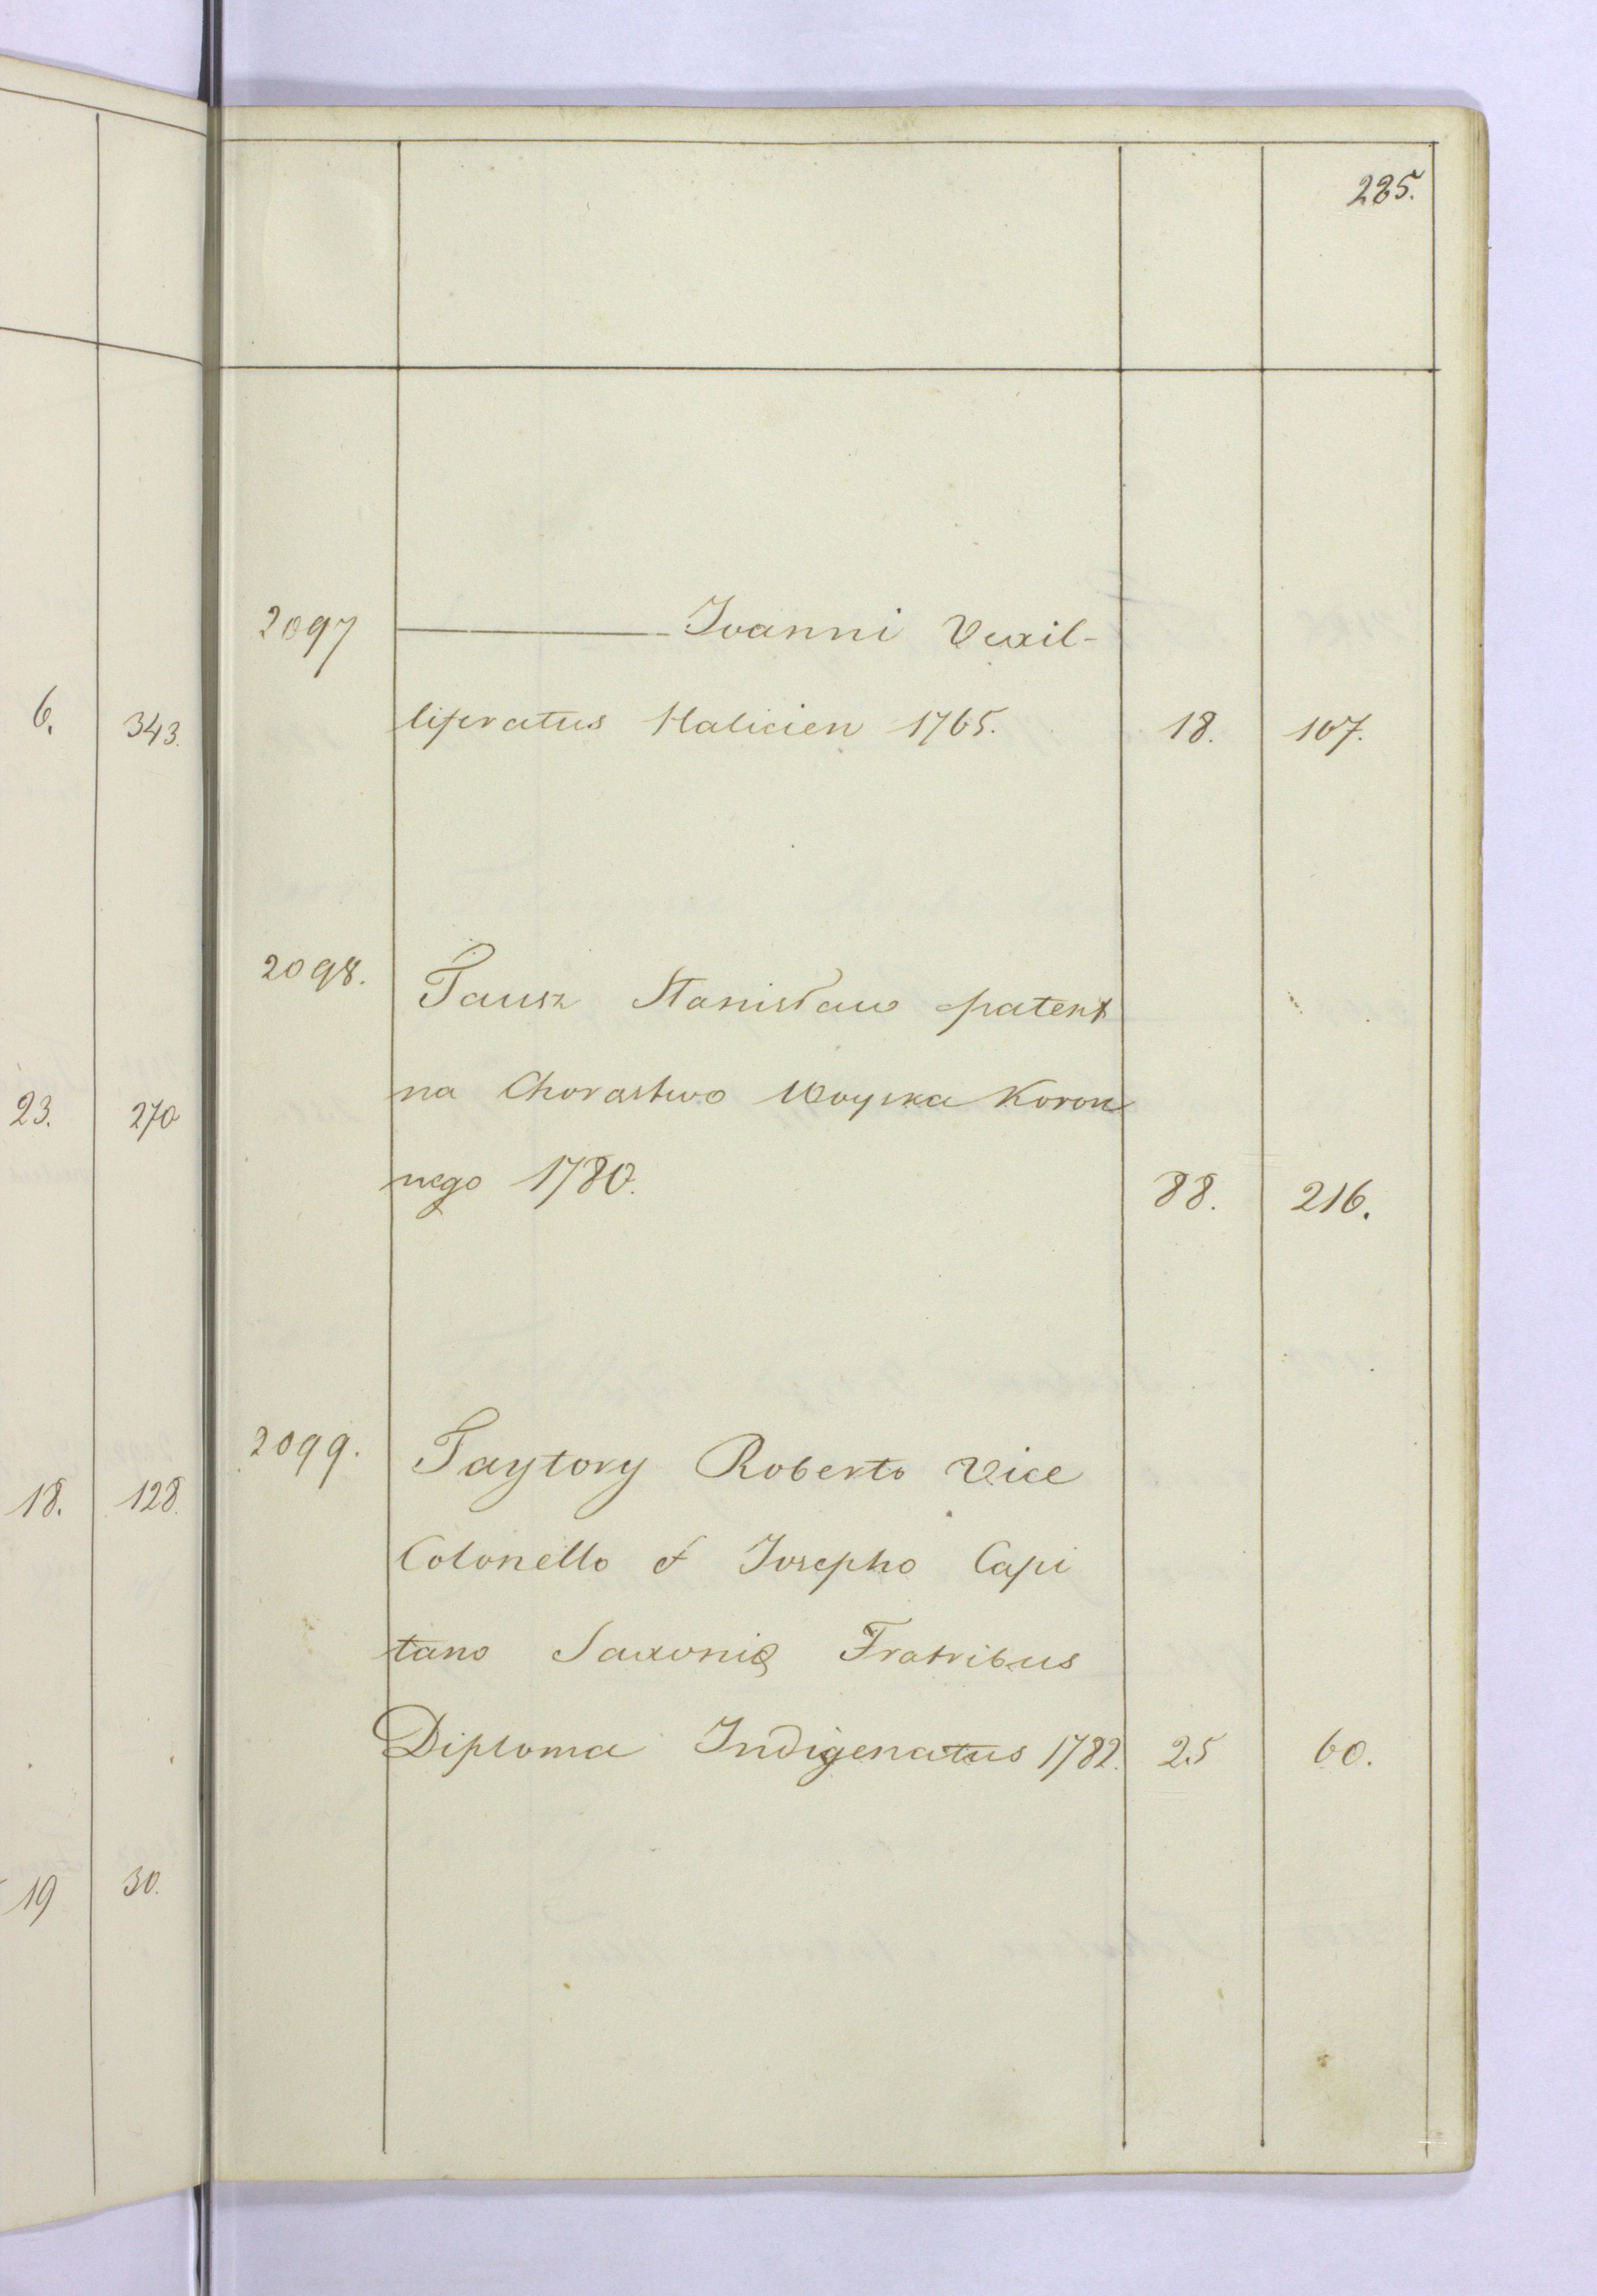 285.
2097 ——— Ioanni Vexil-
liferatus Halicien 1765. 18. 107.
2098. Tausz Stanisław patent
na Chorąstwo Woyska Koron
nego 1780. 88. 216.
2099. Taytory Roberto Vice
Colonello et Iosepho Capi
tano Saxonię Fratribus
Diploma Indigenatus 1782. 25 60.
6. 343.
23. 270
18. 128.
19 30.